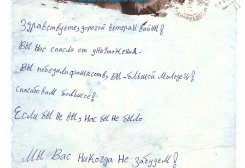 Здравствуйте, дорогой ветеран войны!
Вы нас спасли от уничтожения.
Вы победили фашистов, Вы - большой молодец!
Спасибо вам большое!
Если бы не вы, нас бы не было
Мы Вас никогда не забудем!